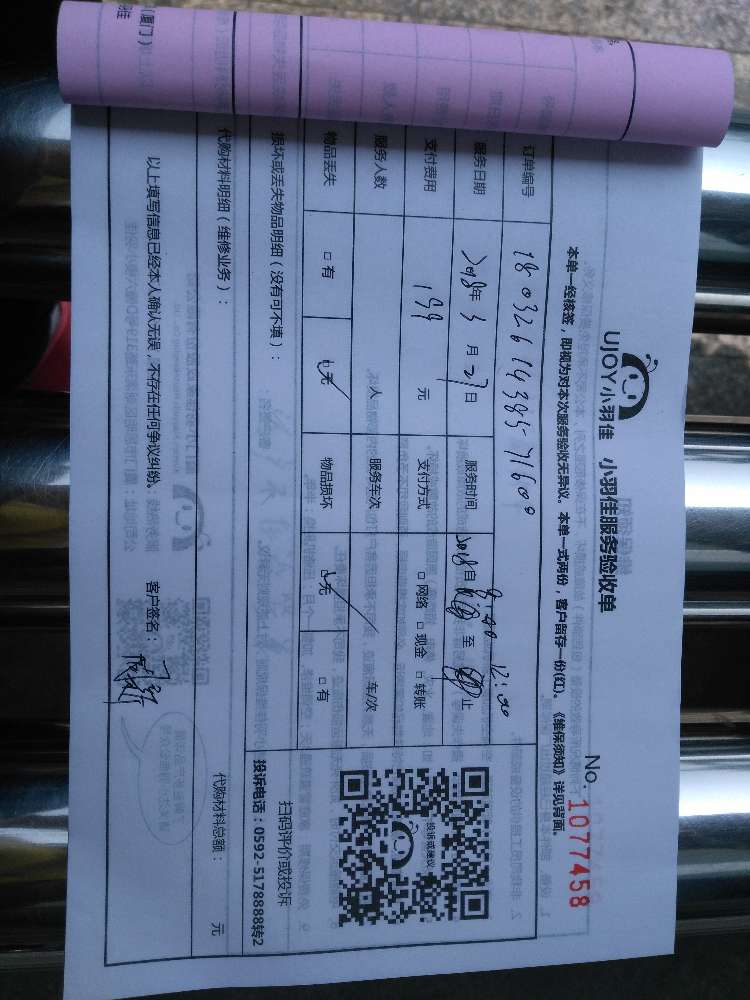 UJOY小羽佳 小羽佳服务验收单
No. 1077458
本单一经核签，即视为对本次服务验收无异议。本单一式两份，客户留存一份(红)。《维保须知》详见背面。
订单编号 18032614385-71600
服务日期 2018年3月27日 服务时间 自8:40至12:00止
支付费用 199 元 支付方式 □网络 □现金 □转账
服务人数 人 服务车次 车/次
物品丢失 □有 □无 物品损坏 □无 □有
损坏或丢失物品明细（没有可不填）：
扫码评价或投诉
投诉电话：0592-5178888转2
投诉或建议
代购材料明细（维修业务）：
代购材料总额： 元
以上填写信息已经本人确认无误，不存在任何争议纠纷。 客户签名：
(厦门)